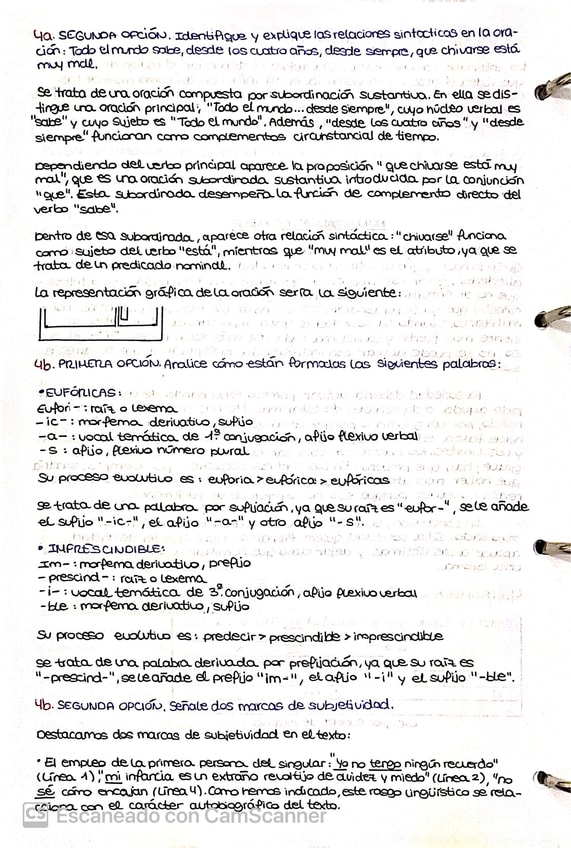 4a. SEGUNDA OPCIÓN. Identifique y explique las relaciones sintácticas en la ora-
ción: Todo el mundo sabe, desde los cuatro años, desde siempre, que chivarse está
muy mal.
Se trata de una oración compuesta por subordinación sustantiva. En ella se dis-
tingue una oración principal, "Todo el mundo... desde siempre", cuyo núcleo verbal es
"sabe" y cuyo sujeto es "Todo el mundo". Además, "desde los cuatro años" y "desde
siempre" funcionan como complementos circunstancial de tiempo.
Dependiendo del verbo principal aparece la proposición "que chivarse está muy
mal", que es una oración subordinada sustantiva introducida por la conjunción
"que". Esta subordinada desempeña la función de complemento directo del
verbo "sabe".
Dentro de esa subordinada, aparece otra relación sintáctica: "chivarse" funciona
como sujeto del verbo "está", mientras que "muy mal" es el atributo, ya que se
trata de un predicado nominal.
La representación gráfica de la oración sería la siguiente:
4b. PRIMERA OPCIÓN. Analice cómo están formadas las siguientes palabras:
• EUFÓRICAS:
Eufori-: raíz o lexema
-ic-: morfema derivativo, sufijo
-a-: vocal temática de 1ª conjugación, afijo flexivo verbal
-s: afijo, flexivo número plural
Su proceso evolutivo es: euforia > eufórica > eufóricas
Se trata de una palabra por sufijación, ya que su raíz es "eufor-", se le añade
el sufijo "-ic-", el afijo "-a-" y otro afijo "-s".
• IMPRESCINDIBLE:
Im-: morfema derivativo, prefijo
-prescind-: raíz o lexema
-i-: vocal temática de 3ª conjugación, afijo flexivo verbal
-ble: morfema derivativo, sufijo
Su proceso evolutivo es: predecir > prescindible > imprescindible
Se trata de una palabra derivada por prefijación, ya que su raíz es
"-prescind-", se le añade el prefijo "im-", el afijo "-i" y el sufijo "-ble".
4b. SEGUNDA OPCIÓN. Señale dos marcas de subjetividad.
Destacamos dos marcas de subjetividad en el texto:
• El empleo de la primera persona del singular: "Yo no tengo ningún recuerdo"
(Línea 1), "mi infancia es un extraño revoltijo de avidez y miedo" (Línea 2), "no
sé cómo encajan (Línea 4). Como hemos indicado, este rasgo lingüístico se rela-
cciona con el carácter autobiográfico del texto.
CS Escaneado con CamScanner